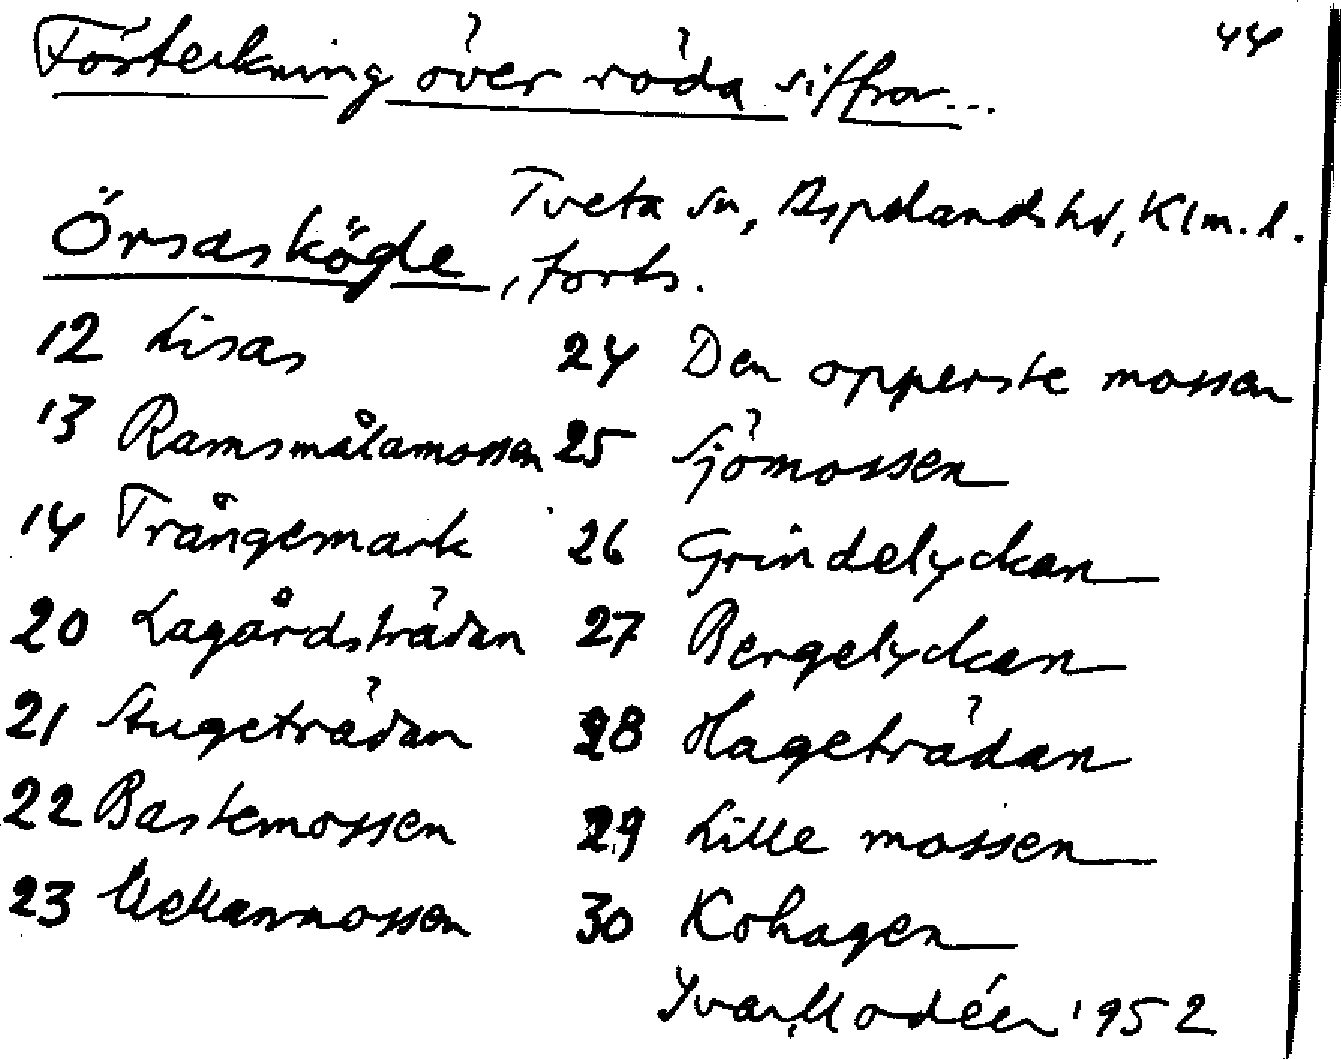 44
Förteckning över röda siffror...
Tveta sn, Aspelands hd, Klm. l.
Örsaskögle, forts.
12 Lisas
13 Ramsmålamossen
14 Trångemark
20 Lagårdsträdan
21 Stugeträdan
22 Bastemossen
23 Mellanmossen
24 Den opperste mossen
25 Sjömossen
26 Grindelyckan
27 Bergelyckan
28 Hageträdan
29 Lille mossen
30 Kohagen
Ivar Modéer 1952